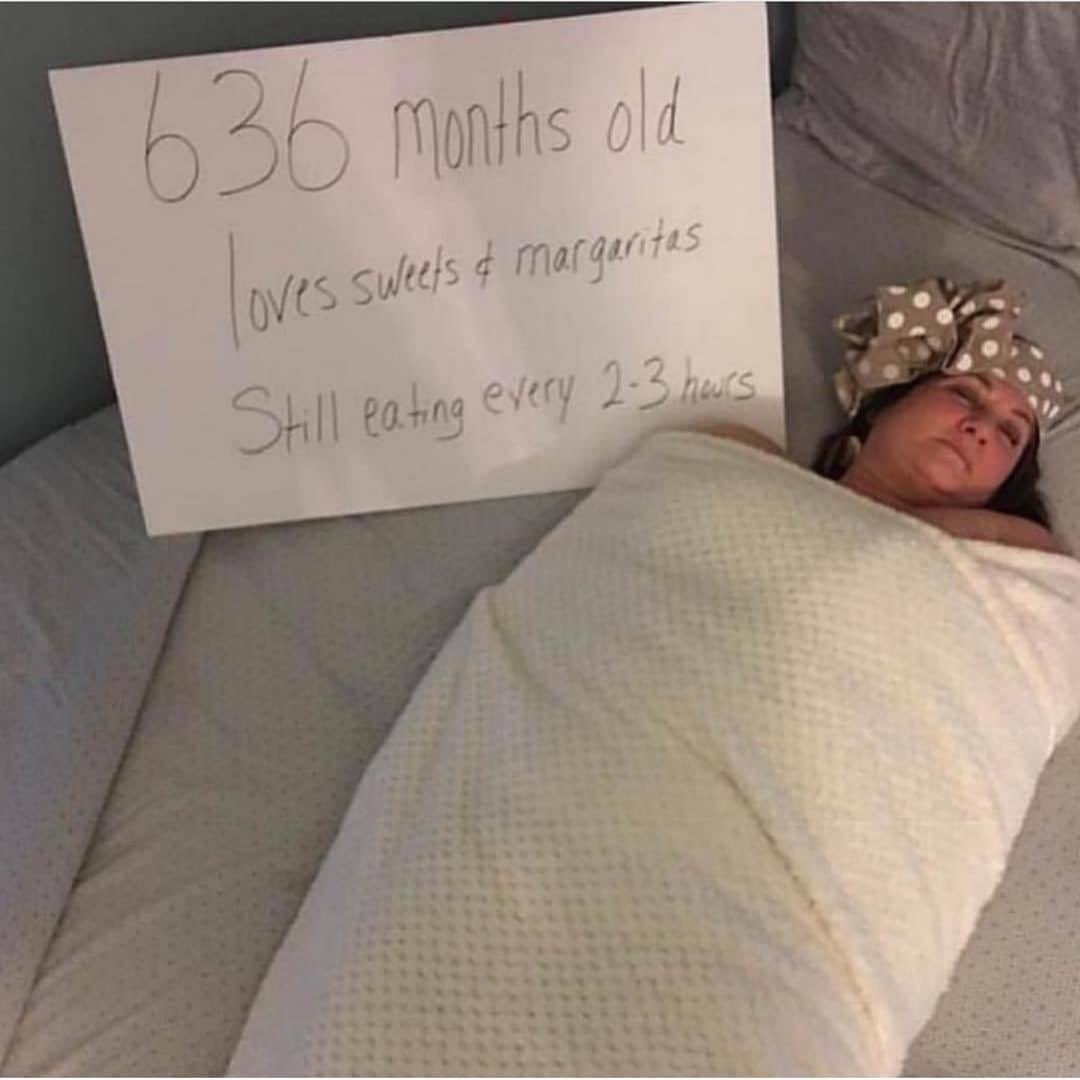 636 months old
loves sweets & margaritas
Still eating every 2-3 hours